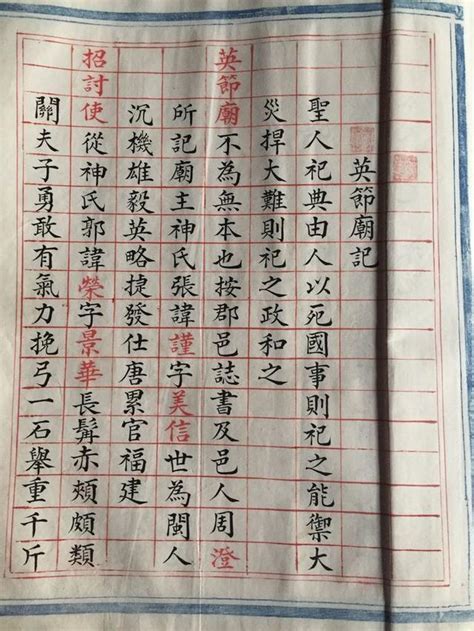 英節廟記
聖人祀典由人以死國事則祀之能禦大
災捍大難則祀之政和之
英節廟不為無本也按郡邑誌書及邑人周澄
所記廟主神氏張諱謹字美信世為閩人
沉機雄毅英略捷發仕唐累官福建
招討使從神氏郭諱榮字景華長髯赤頰頗類
關夫子勇敢有氣力挽弓一石舉重千斤